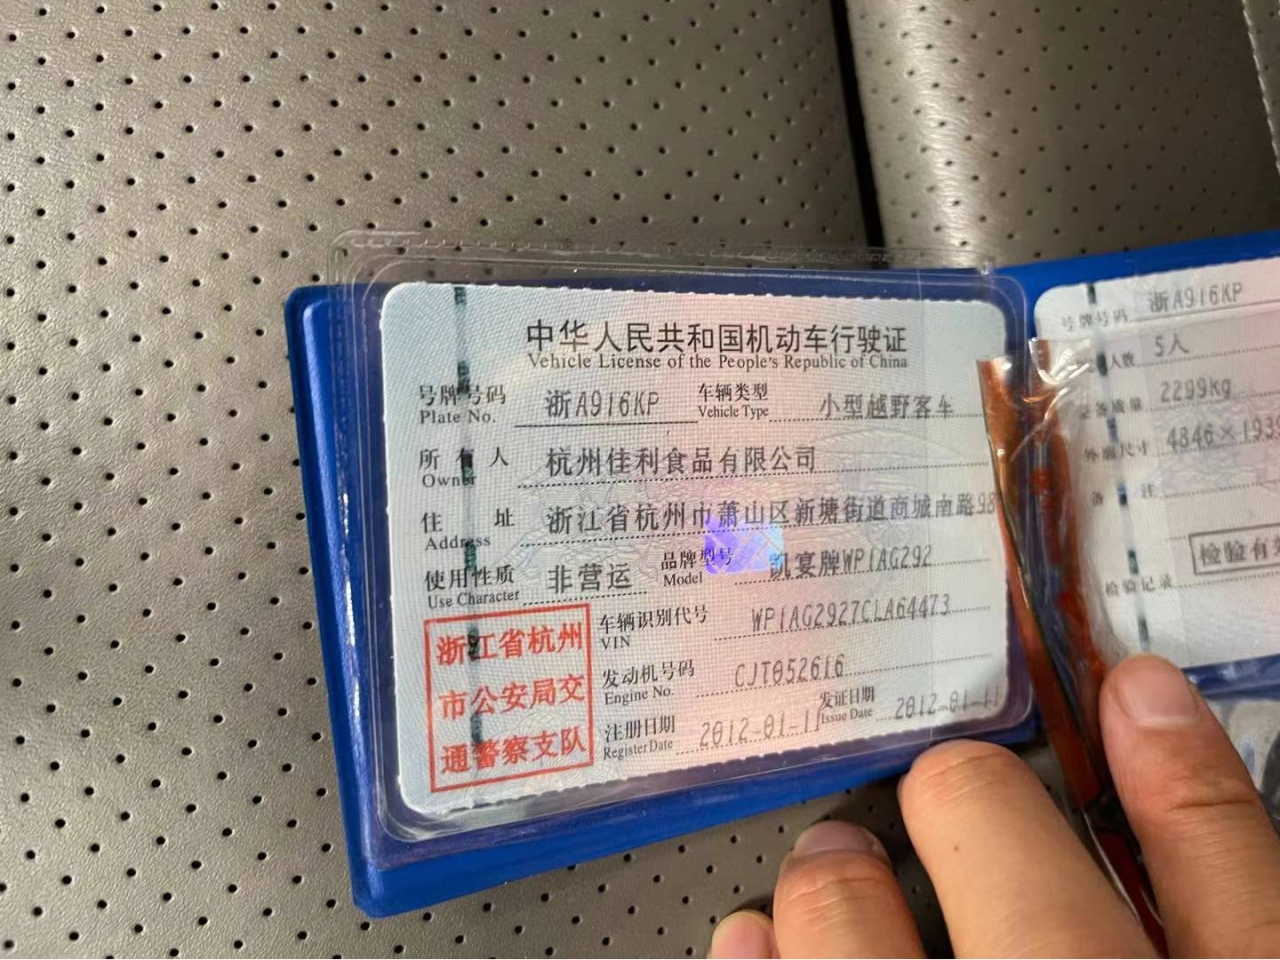 中华人民共和国机动车行驶证
Vehicle License of the People's Republic of China
号牌号码 浙A916KP 车辆类型 小型越野客车
Plate No. Vehicle Type
所有人 杭州佳利食品有限公司
Owner
住址 浙江省杭州市萧山区新塘街道商城南路98
Address
使用性质 非营运 品牌型号 凯宴牌WP1AG292
Use Character Model
浙江省杭州
市公安局交
通警察支队
车辆识别代号 WP1AG2927CLA64473
VIN
发动机号码 CJT052616
Engine No.
注册日期 2012-01-11 发证日期 2012-01-11
Register Date Issue Date
号牌号码 浙A916KP
人数 5人
整备质量 2299kg
外廓尺寸 4846×193
备注
检验有
检验记录